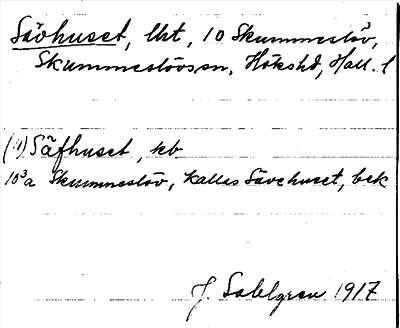 Sävhuset, lht, 10 Skummeslöv,
Skummeslövs sn, Hökshd, Hall. l
(11) Säfhuset, kb
10³a Skummeslöv, kallas Sävehuset, bek
J. Sahlgren 1917